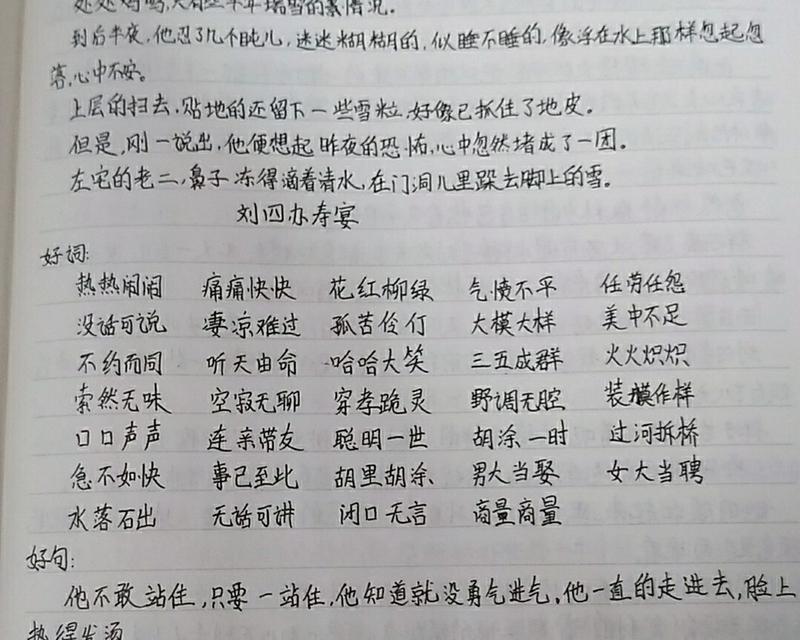 到后半夜，他忍了几个盹儿，迷迷糊糊的，似睡不睡的，像浮在水上那样忽起忽
落，心中不安。
上层的扫去，贴地的还留下一些雪粒，好像已抓住了地皮。
但是，刚一说出，他便想起昨夜的恐怖，心中忽然堵成了一团。
左宅的老二，鼻子冻得滴着清水，在门洞儿里跺去脚上的雪。
刘四办寿宴
好词：
热热闹闹 痛痛快快 花红柳绿 气愤不平 任劳任怨
没话可说 凄凉难过 孤苦伶仃 大模大样 美中不足
不约而同 听天由命 哈哈大笑 三五成群 火火炽炽
索然无味 空寂无聊 穿孝跪灵 野调无腔 装模作样
口口声声 连亲带友 聪明一世 胡涂一时 过河拆桥
急不如快 事已至此 胡里胡涂、 男大当娶 女大当聘
水落石出 无话可讲 闭口无言 商量商量
好句：
他不敢站住，只要一站住，他知道就没勇气进气，他一直的走进去，脸上
热得发烫